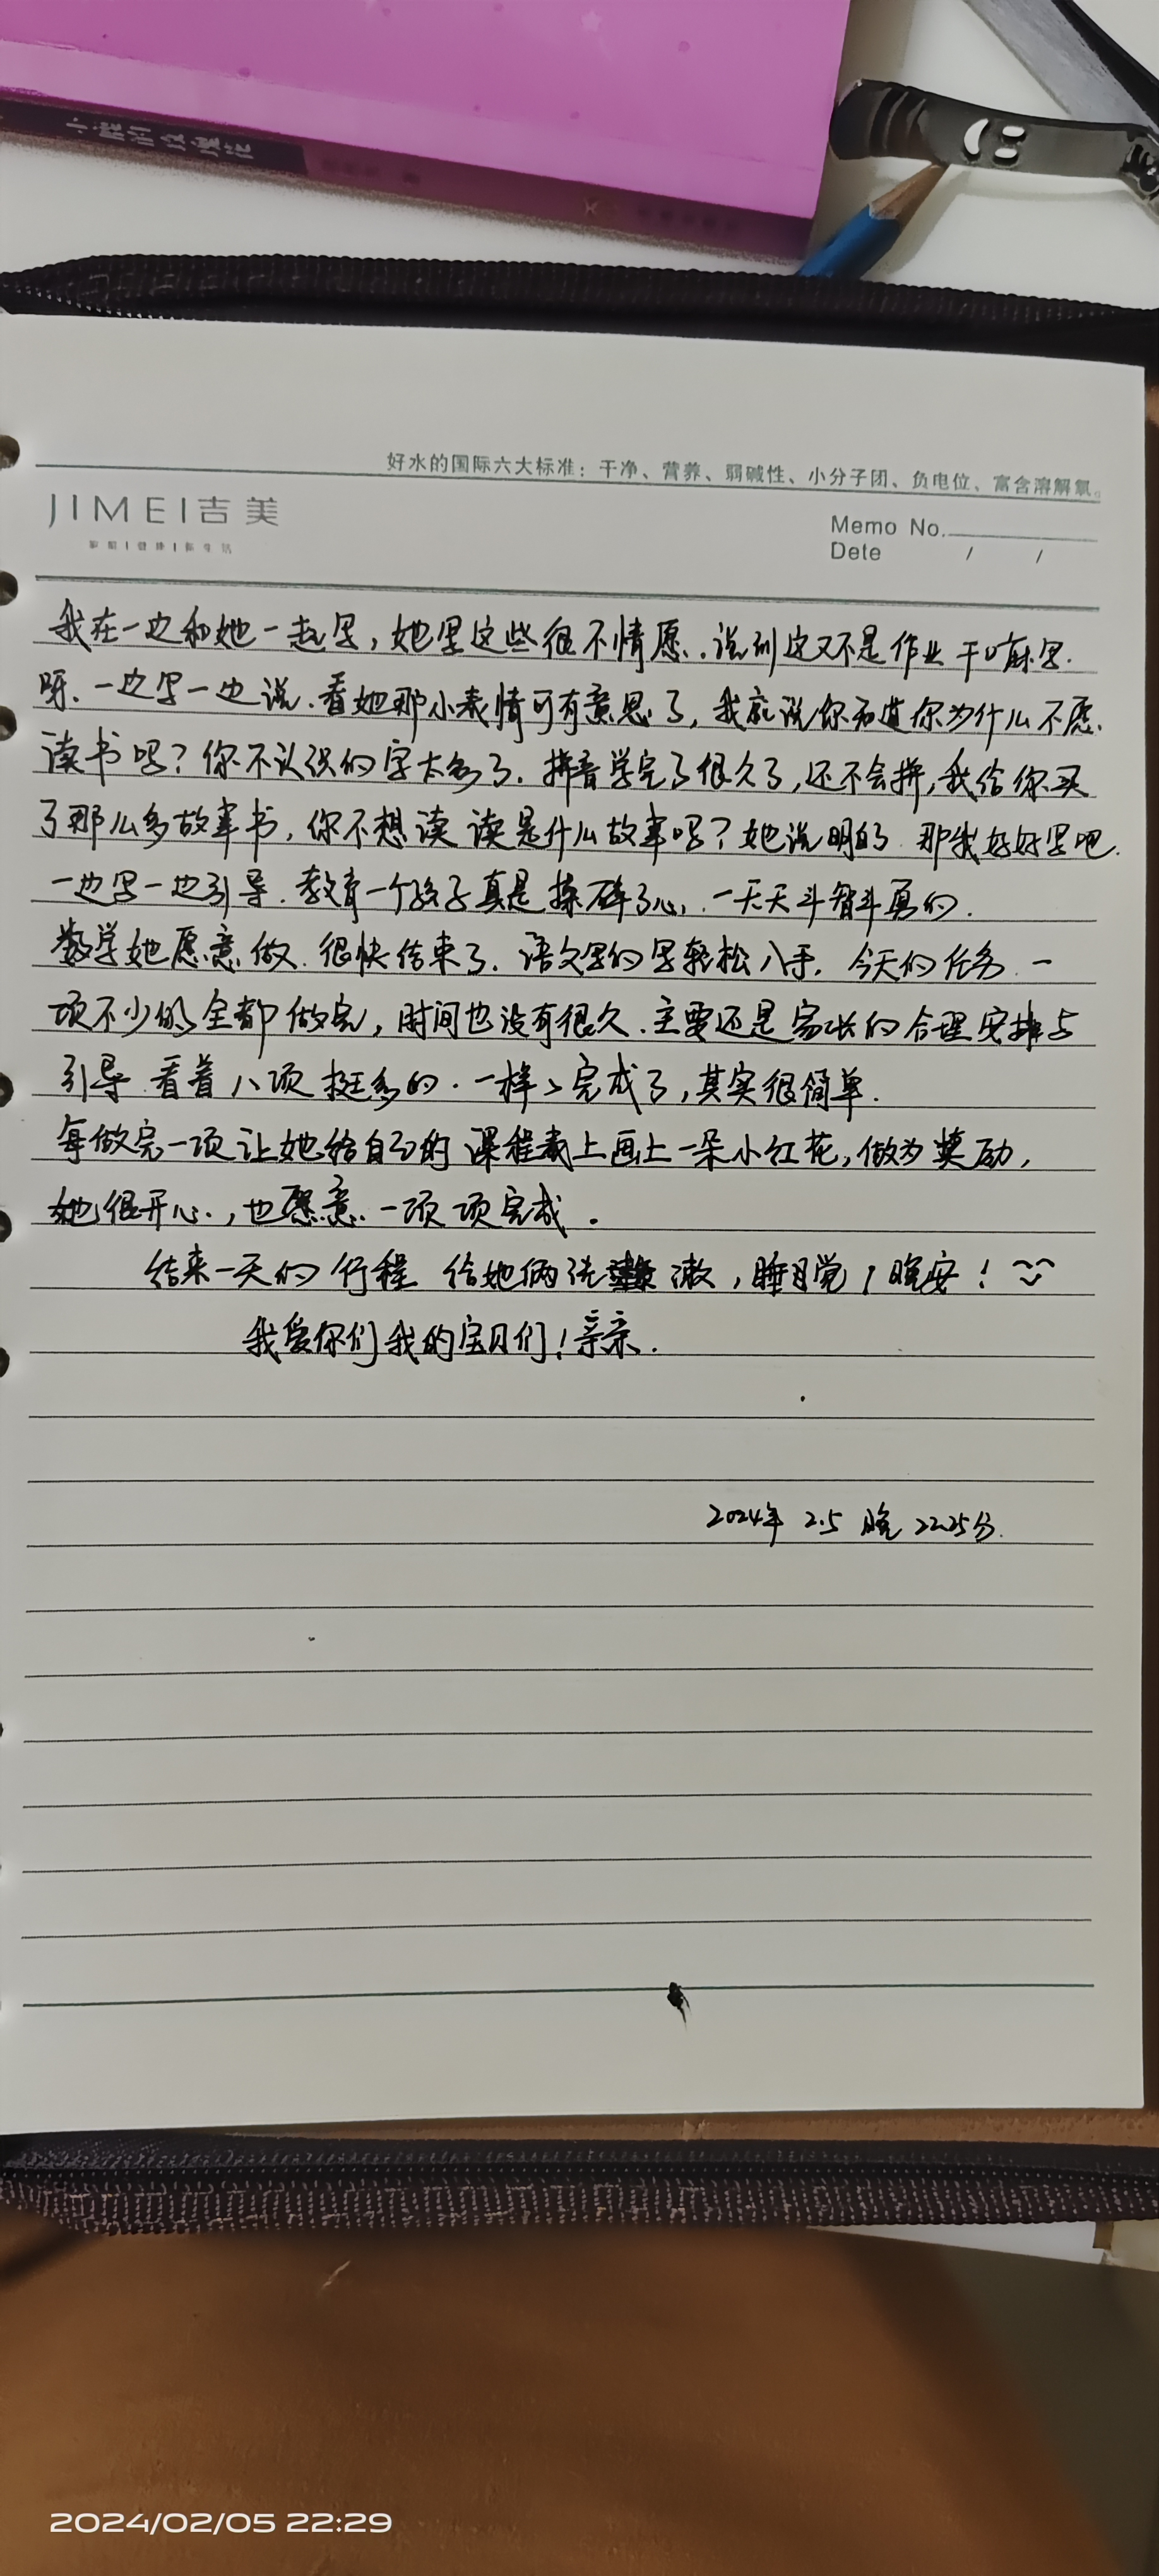 小熊的玫瑰花
好水的国际六大标准：干净、营养、弱碱性、小分子团、负电位、富含溶解氧。
JIMEI吉美
Memo No.
Dete / /
我在一边和她一起写，她写这些很不情愿．说到这又不是作业干嘛写．
呀、一边写一边说．看她那小表情可有意思了，我就说你知道你为什么不愿．
读书吗？你不认识的字太多了．拼音学完了很久了，还不会拼，我给你买
了那么多故事书，你不想读读是什么故事吗？她说明白．那我好好写吧．
一边写一边引导．教育一个孩子真是操碎了心，一天天斗智斗勇的．
数学她愿意做．很快结束了．语文写的字轻松入手．今天的任务．一
项不少的全都做完，时间也没有很久．主要还是家长的合理安排与
引导．看着八项挺多的．一样〻完成了，其实很简单．
每做完一项让她给自己的课程表上画上一朵小红花，做为奖励，
她很开心，也愿意一项项完成．
结束一天的行程 给她俩洗漱，睡目觉，晚安！
我爱你们我的宝贝们！亲亲．
2024年 2.5 晚 22.25分．
2024/02/05 22:29